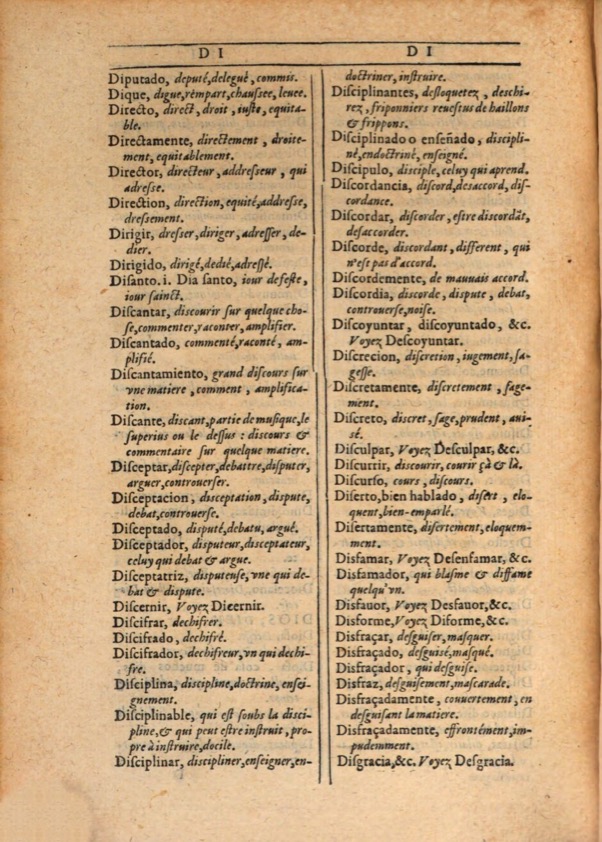 D I
Diputado, deputé, delegué, commis.
Dique, digue, rémpart, chaussee, leuee.
Directo, direct, droit, iuste, equita-
ble.
Directamente, directement, droite-
ment, equitablement.
Director, directeur, addresseur, qui
adresse.
Direction, direction, equité, addresse,
dressement.
Dirigir, dresser, diriger, adresser, de-
dier.
Dirigido, dirigé, dedié, adressé.
Disanto. i. Dia santo, iour de feste,
iour sainct.
Discantar, discourir sur quelque cho-
se, commenter, raconter, amplifier.
Discantado, commenté, raconté, am-
plifié.
Discantamiento, grand discours sur
vne matiere, comment, amplifica-
tion.
Discante, discant, partie de musique, le
superius ou le dessus : discours &
commentaire sur quelque matiere.
Disceptar, discepter, debattre, disputer,
arguer, controuerser.
Disceptacion, disceptation, dispute,
debat, controuerse.
Disceptado, disputé, debatu, argué.
Disceptador, disputeur, disceptateur,
celuy qui debat & argue.
Disceptatriz, disputeuse, vne qui de-
bat & dispute.
Discernir, Voyez Dicernir.
Discifrar, dechifrer.
Discifrado, dechifré.
Discifrador, dechifreur, vn qui dechi-
fre.
Disciplina, discipline, doctrine, ensei-
gnement.
Disciplinable, qui est soubs la disci-
pline, & qui peut estre instruit, pro-
pre à instruire, docile.
Disciplinar, discipliner, enseigner, en-
D I
doctriner, instruire.
Disciplinantes, dessoquetez, deschi-
rez, friponniers reuestus de haillons
& frippons.
Disciplinado o enseñado, discipli-
né, endoctriné, enseigné.
Discipulo, disciple, celuy qui aprend.
Discordancia, discord, desaccord, dis-
cordance.
Discordar, discorder, estre discordãt,
desaccorder.
Discorde, discordant, different, qui
n'est pas d'accord.
Discordemente, de mauuais accord.
Discordia, discorde, dispute, debat,
controuerse, noise.
Discoyuntar, discoyuntado, &c.
Voyez Descoyuntar.
Discrecion, discretion, iugement, sa-
gesse.
Discretamente, discretement, sage-
ment.
Discreto, discret, sage, prudent, aui-
sé.
Disculpar, Voyez Desculpar, &c.
Discurrir, discourir, courir çà & là.
Discurso, cours, discours.
Diserto, bien hablado, disert, elo-
quent, bien-emparlé.
Disertamente, disertement, eloquem-
ment.
Disfamar, Voyez Desenfamar, &c.
Disfamador, qui blasme & diffame
quelqu'vn.
Disfauor, Voyez Desfauor, &c.
Disforme, Voyez Diforme, &c.
Disfraçar, desguiser, masquer.
Disfraçado, desguisé, masqué.
Disfraçador, qui desguise.
Disfraz, desguisement, mascarade.
Disfraçadamente, couuertement, en
desguisant la matiere.
Disfraçadamente, effrontément, im-
pudemment.
Disgracia, &c. Voyez Desgracia.